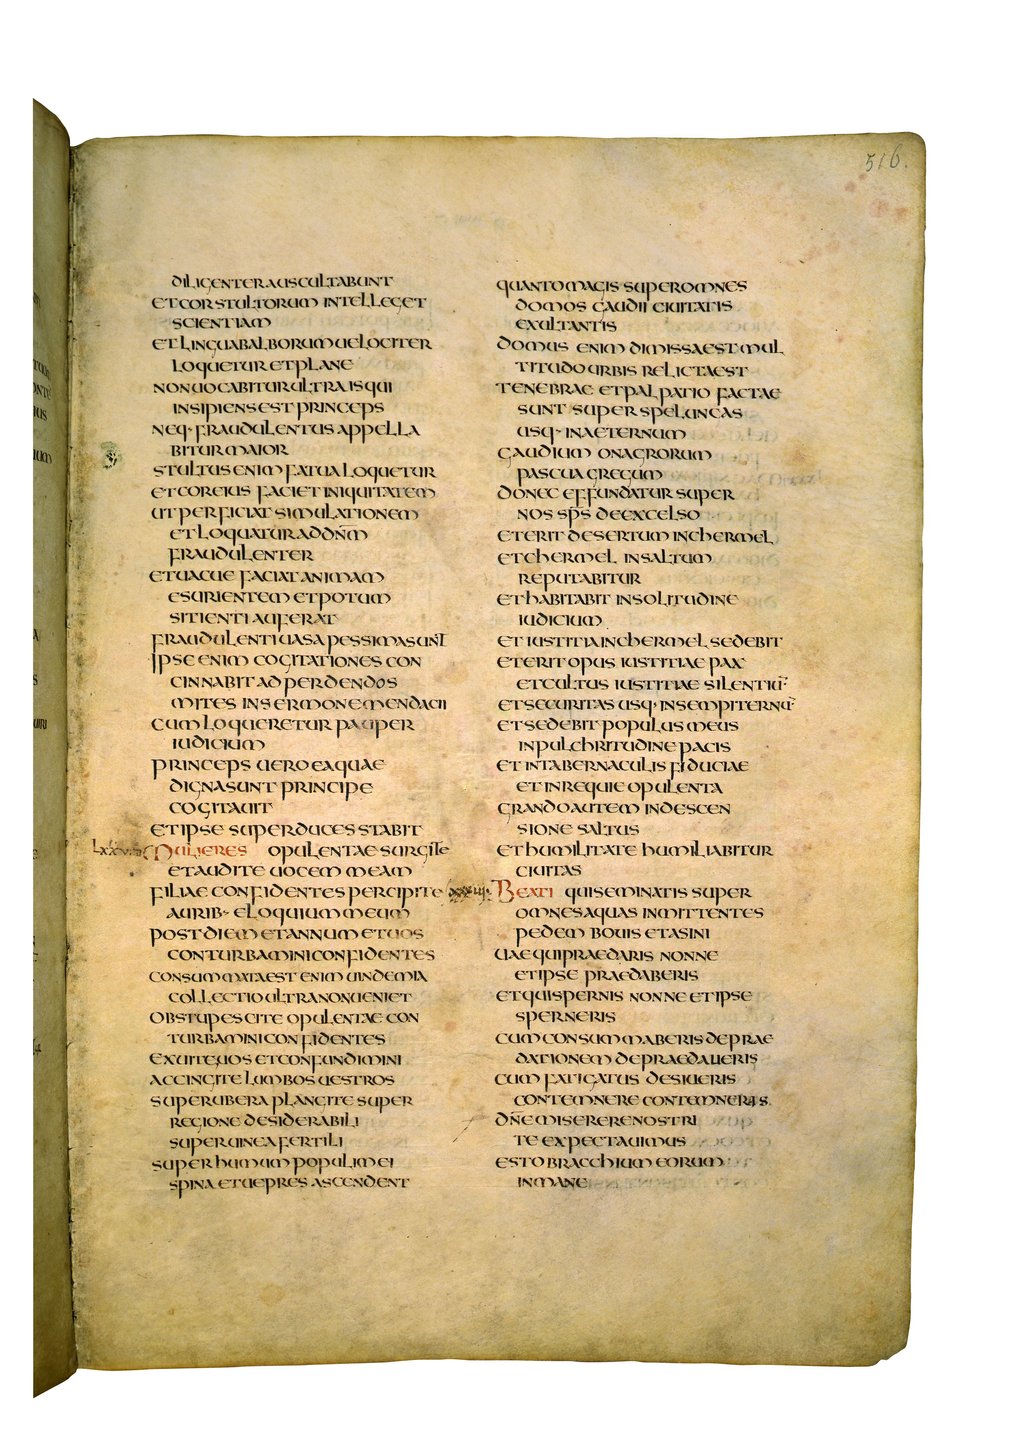 516.
DILIGENTER AUSCULTABUNT
ET COR STULTORUM INTELLEGET
SCIENTIAM
ET LINGUA BALBORUM UELOCITER
LOQUETUR ET PLANE
NON UOCABITUR ULTRA IS QUI
INSIPIENS EST PRINCEPS
NEQ· FRAUDULENTUS APPELLA
BITUR MAIOR
STULTUS ENIM FATUA LOQUETUR
ET COR EIUS FACIET INIQUITATEM
UT PERFICIAT SIMULATIONEM
ET LOQUATUR AD DN̄M
FRAUDULENTER
ET UACUE FACIAT ANIMAM
ESURIENTEM ET POTUM
SITIENTI AUFERAT
FRAUDULENTI UASA PESSIMA SUNT
IPSE ENIM COGITATIONES CON
CINNABIT AD PERDENDOS
MITES IN SERMONE MENDACII
CUM LOQUERETUR PAUPER
IUDICIUM
PRINCEPS UERO EA QUAE
DIGNA SUNT PRINCIPE
COGITAUIT
ET IPSE SUPER DUCES STABIT
MULIERES OPULENTAE SURGITE
ET AUDITE UOCEM MEAM
FILIAE CONFIDENTES PERCIPITE
AURIB· ELOQUIUM MEUM
POST DIEM ET ANNUM ET UOS
CONTURBAMINI CONFIDENTES
CONSUMMATA EST ENIM UINDEMIA
COLLECTIO ULTRA NON UENIET
OBSTUPESCITE OPULENTAE CON
TURBAMINI CONFIDENTES
EXUITE UOS ET CONFUNDIMINI
ACCINGITE LUMBOS UESTROS
SUPER UBERA PLANGITE SUPER
REGIONE DESIDERABILI
SUPER UINEA FERTILI
SUPER HUMUM POPULI MEI
SPINA ET UEPRES ASCENDENT
QUANTO MAGIS SUPER OMNES
DOMOS GAUDII CIUITATIS
EXULTANTIS
DOMUS ENIM DIMISSA EST MUL
TITUDO URBIS RELICTA EST
TENEBRAE ET PALPATIO FACTAE
SUNT SUPER SPELUNCAS
USQ· IN AETERNUM
GAUDIUM ONAGRORUM
PASCUA GREGUM
DONEC EFFUNDATUR SUPER
NOS SP̄S DE EXCELSO
ET ERIT DESERTUM IN CHERMEL
ET CHERMEL IN SALTUM
REPUTABITUR
ET HABITABIT IN SOLITUDINE
IUDICIUM
ET IUSTITIA IN CHERMEL SEDEBIT
ET ERIT OPUS IUSTITIAE PAX
ET CULTUS IUSTITIAE SILENTIŪ
ET SECURITAS USQ· IN SEMPITERNŪ
ET SEDEBIT POPULUS MEUS
IN PULCHRITUDINE PACIS
ET IN TABERNACULIS FIDUCIAE
ET IN REQUIE OPULENTA
GRANDO AUTEM IN DESCEN
SIONE SALTUS
ET HUMILITATE HUMILIABITUR
CIUITAS
BEATI QUI SEMINATIS SUPER
OMNES AQUAS INMITTENTES
PEDEM BOUIS ET ASINI
UAE QUI PRAEDARIS NONNE
ET IPSE PRAEDABERIS
ET QUI SPERNIS NONNE ET IPSE
SPERNERIS
CUM CONSUMMABERIS DEPRAE
DATIONEM DEPRAEDAUERIS
CUM FATIGATUS DESIUERIS
CONTEMNERE CONTEMNERIS
DN̄E MISERERE NOSTRI
TE EXPECTAUIMUS
ESTO BRACCHIUM EORUM
IN MANE